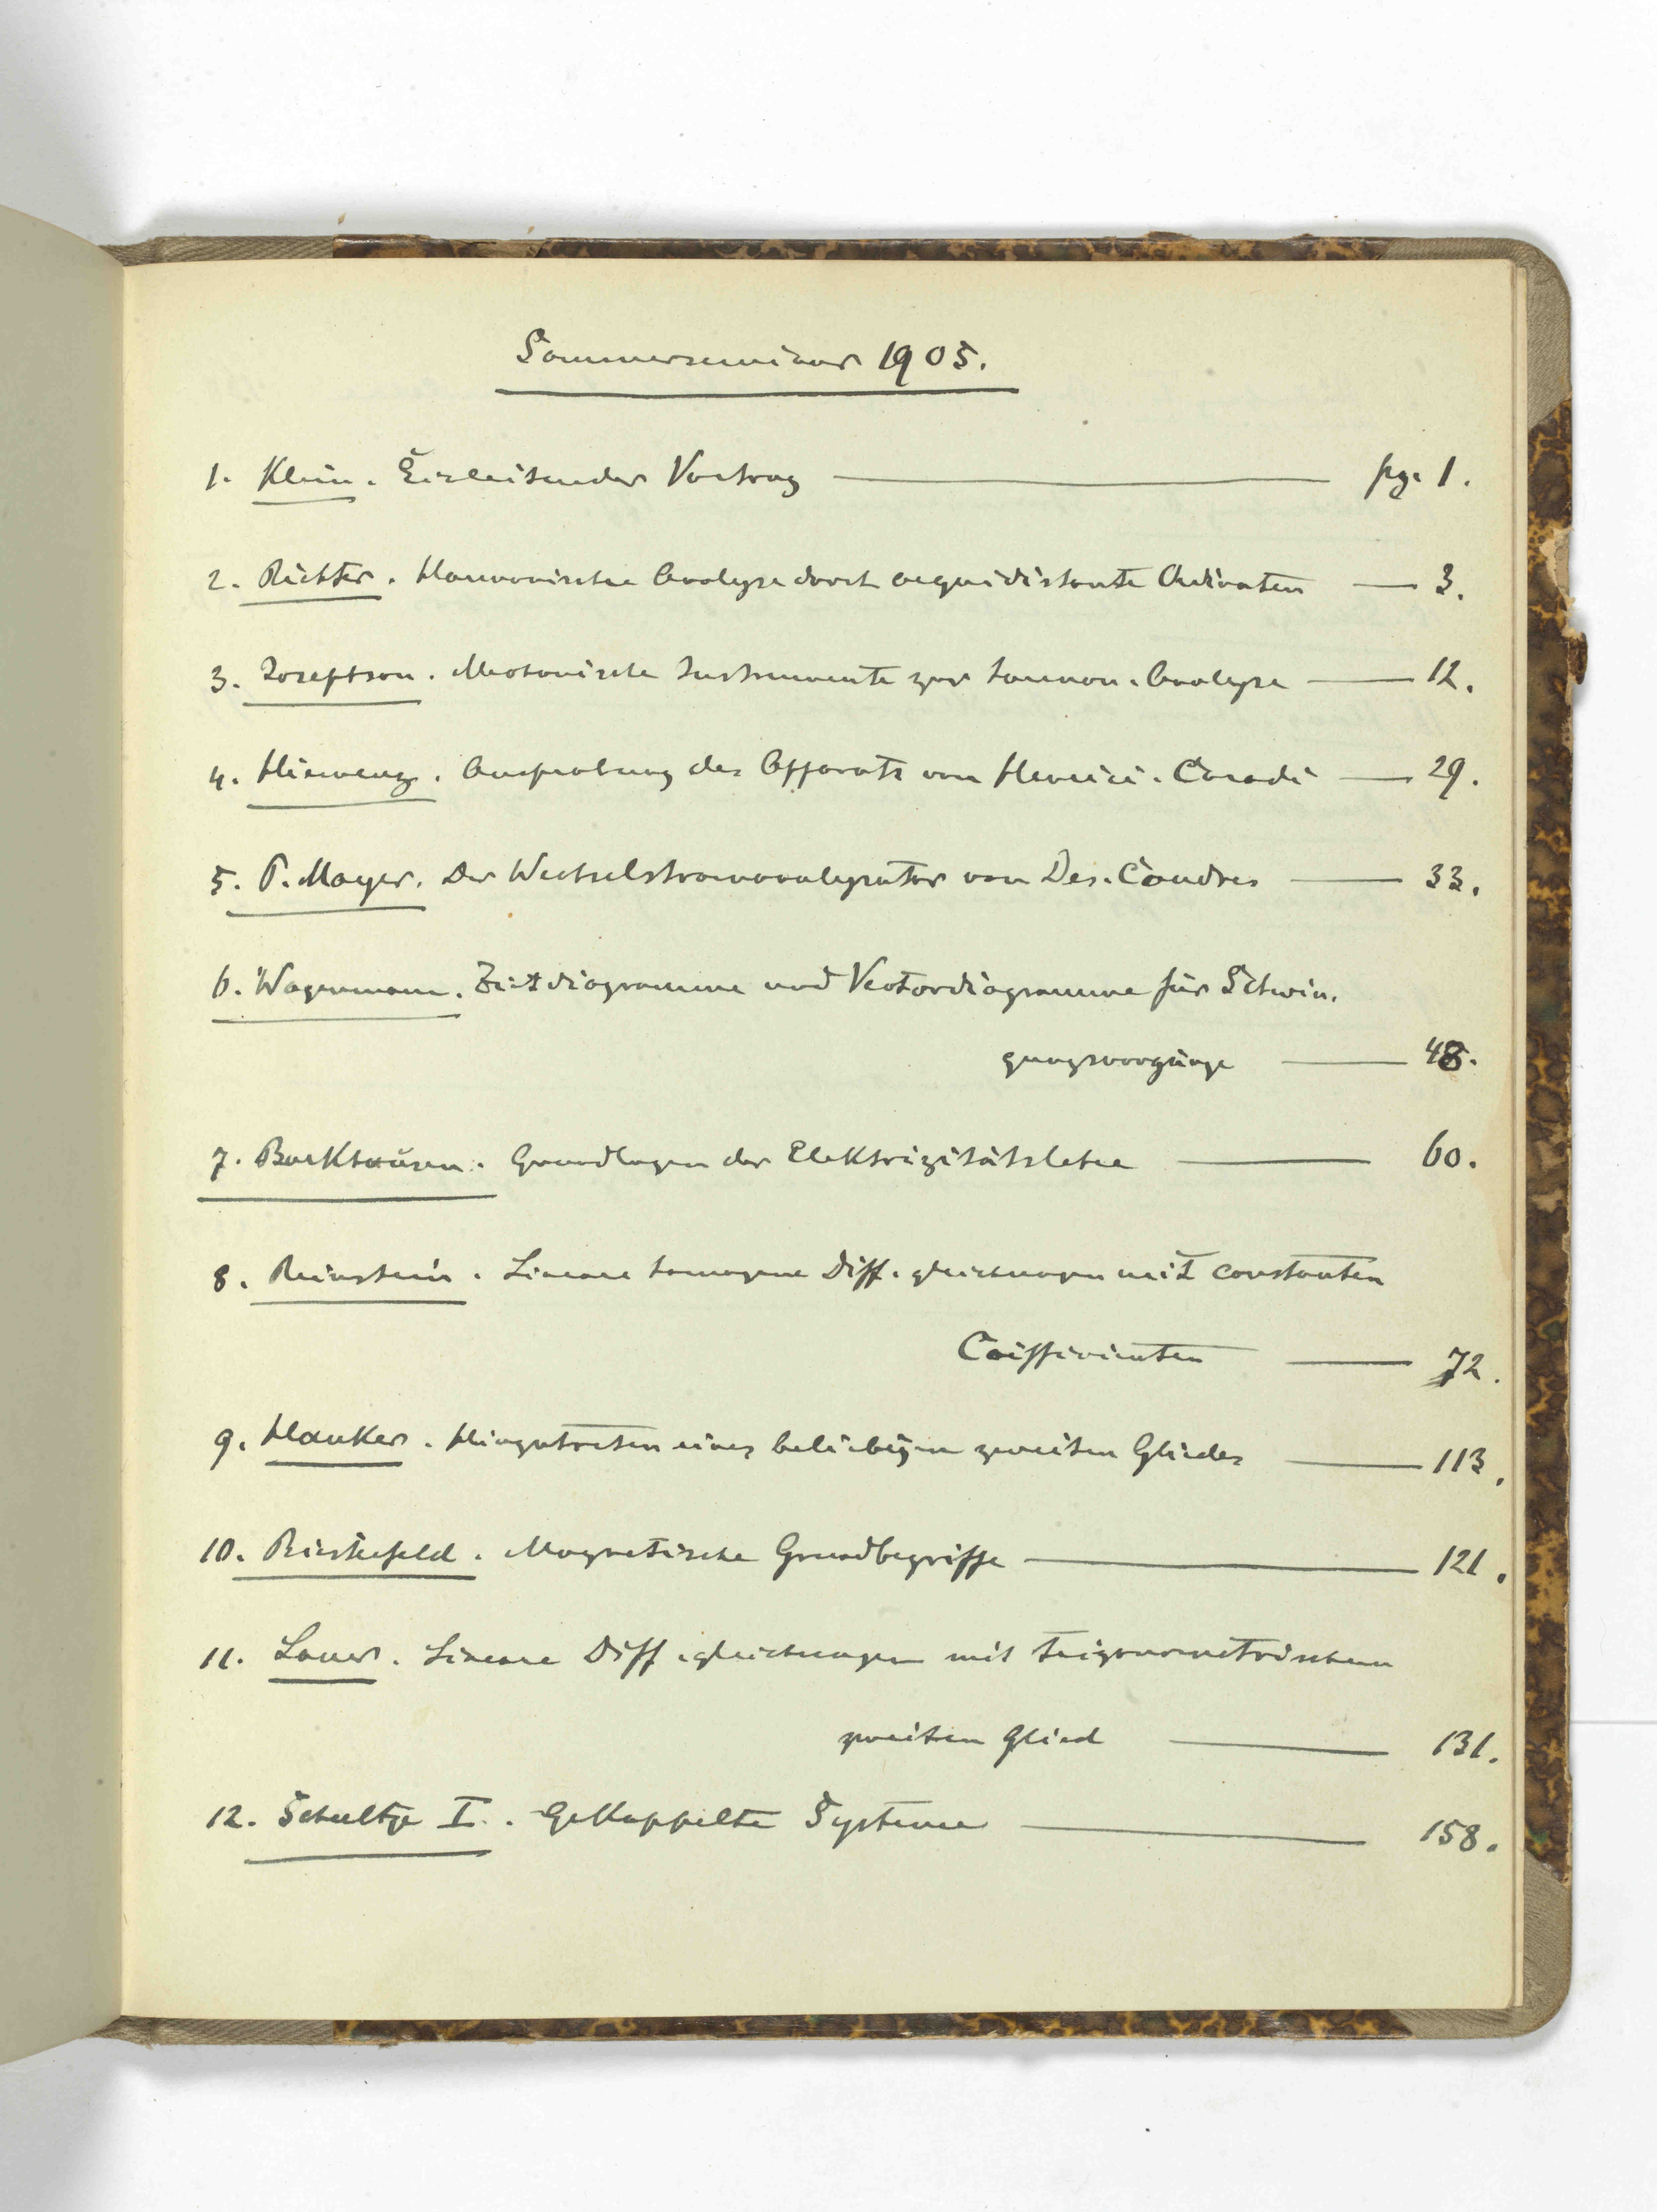 Sommerseminar 1905.
1. Klein. Einleitender Vortrag — pg. 1.
2. Richter. Harmonische Analyse durch aequidistante Ordinaten — 3.
3. Josephson. Mechanische Instrumente zur harmon. Analyse — 12.
4. Hiemenz. Ausprobung des Apparats von Henrici-Coradi — 29.
5. P. Mayer. Der Wechselstromanalysator von Des-Coudres — 33.
6. Wagenmann. Zeitdiagramme und Vectordiagramme für Schwin-
gungsvorgänge — 48.
7. Barkhausen. Grundlagen der Elektrizitätslehre — 60.
8. Reinstein. Lineare homogene Diff.gleichungen mit constanten
Coifficienten — 72.
9. Hanker. Hinzutreten eines beliebigen zweiten Gliedes — 113.
10. Biestefeld. Magnetische Grundbegriffe — 121.
11. Lauer. Lineare Diff.gleichungen mit trigonometrischem
zweiten Glied — 131.
12. Schultze I. Gekoppelte Systeme — 158.